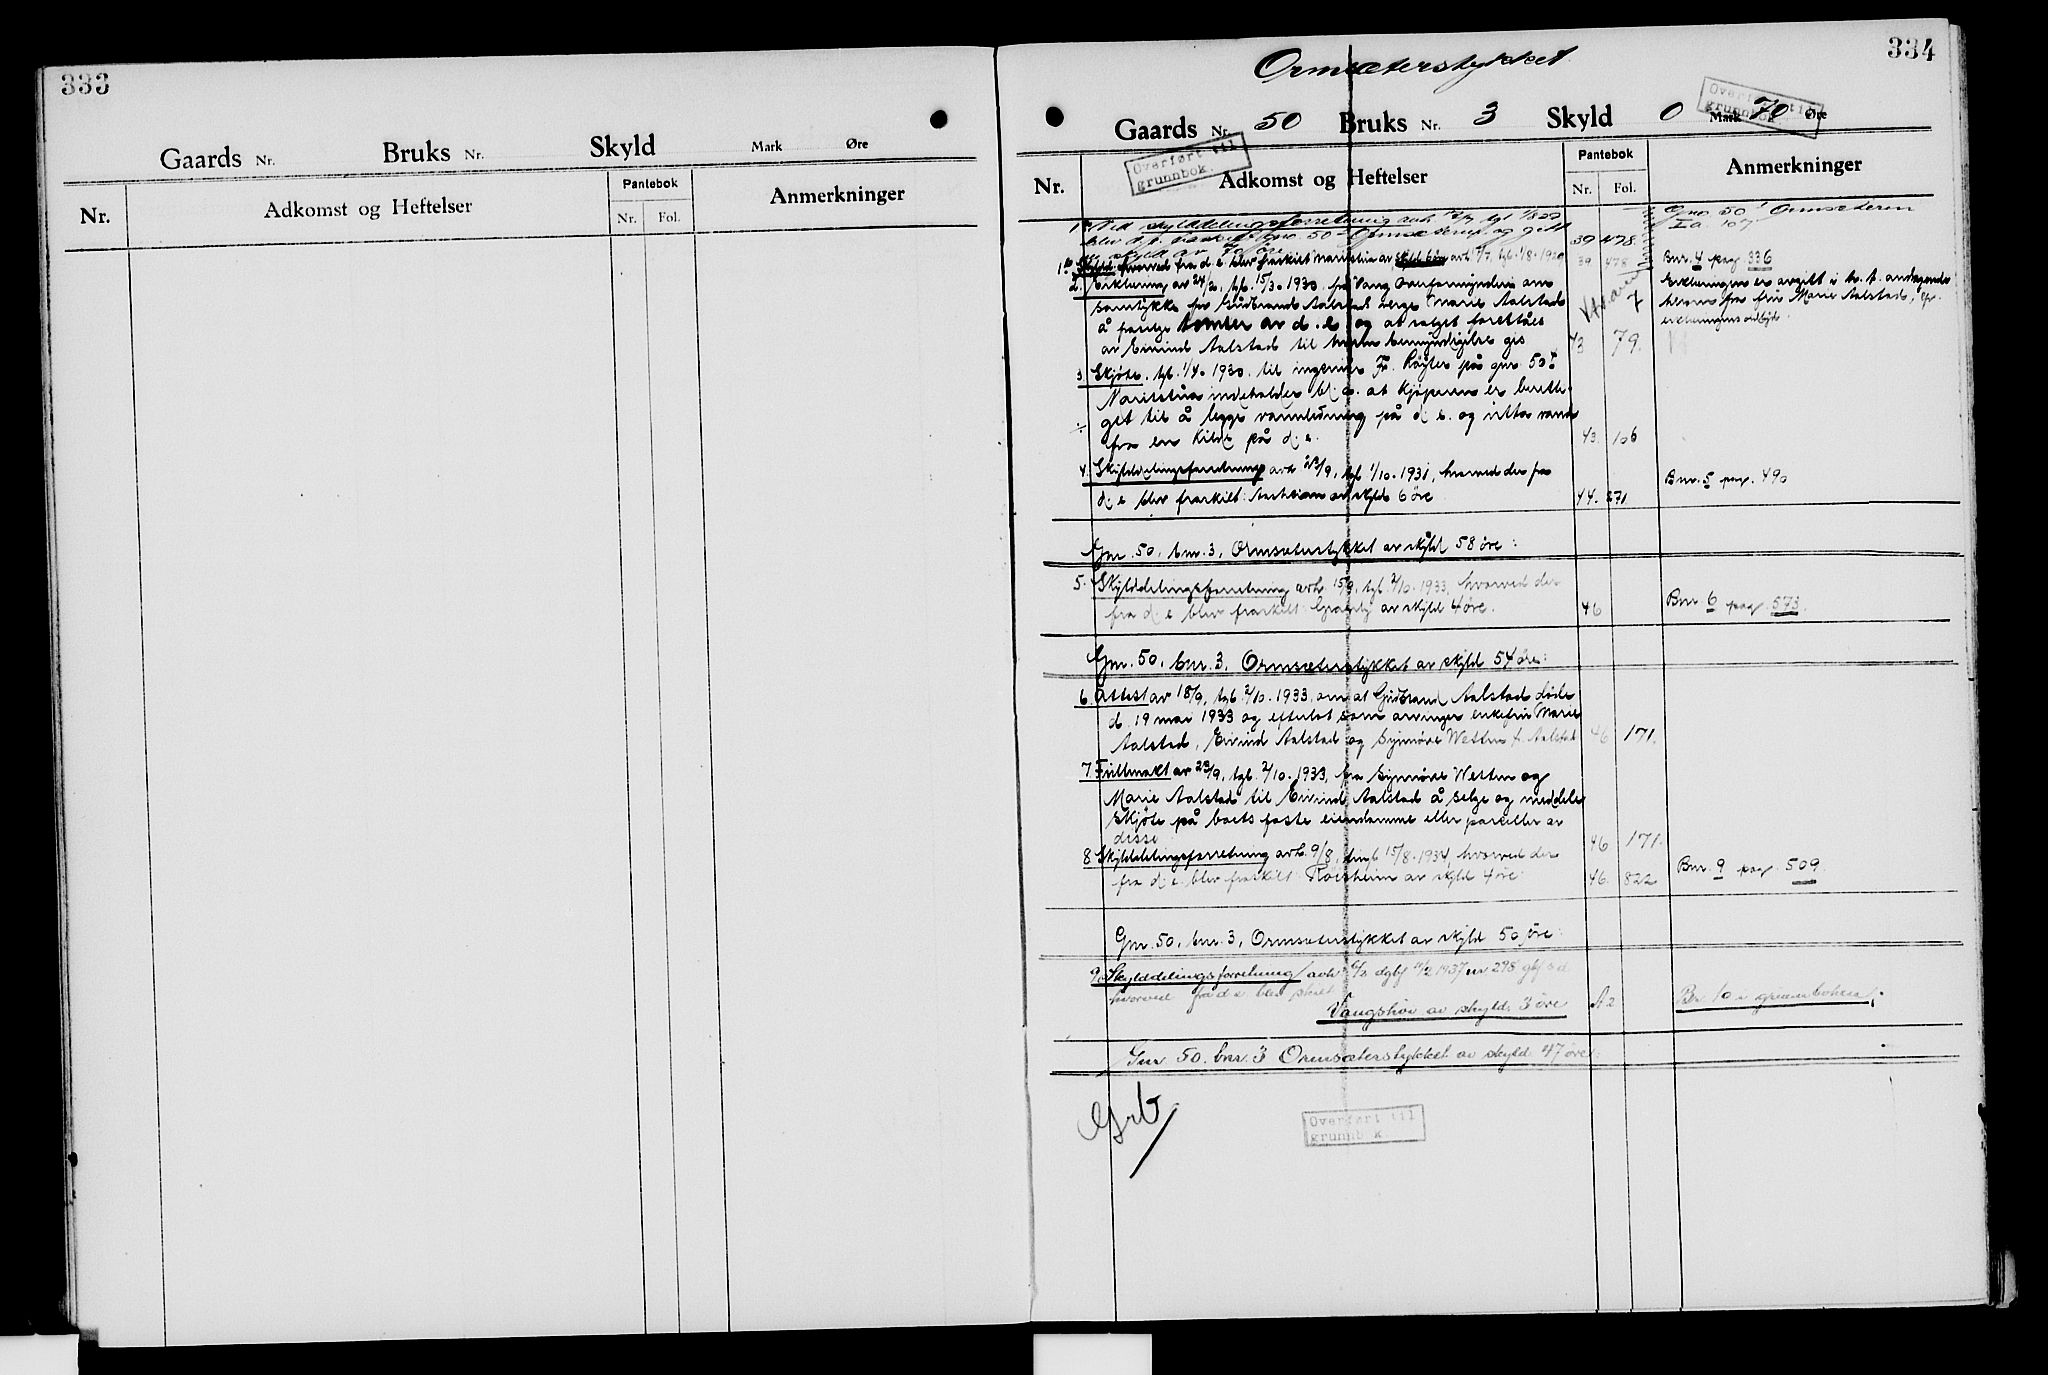 333
Gaards Nr. Bruks Nr. Skyld Mark Øre
Nr. Adkomst og Heftelser Pantebok Anmerkninger
Nr. Fol.
334
Ormsæterstykket
Gaards Nr. 50 Bruks Nr. 3 Skyld 0 Mark 70 Øre
Overført til
grunnbok.
Overført til
grunnbok.
Nr. Adkomst og Heftelser Pantebok Anmerkninger
Nr. Fol.
1. Ved skylddelingsforretning avh. tgl.
blev d. e. gnr. 50 og gitt 39 478 Gno. 50 Ormsæteren
en skyld av 70 øre
hvorved fra d. e. blev fraskilt av 17/7, tgl. 1/8. 39 478 Bnr. 4 pag. 336
2. Erklæring av 24/2, tgl. 15/3. 1930. fra Vang overformynderi om
samtykke for Gudbrand Aalstads verge Marie Aalstad
å fraselge tomter av d. e. og at salget foretåes
av Eivind Aalstad til hvem bemyndigelse gis 43 79.
Erklæringen er avgitt i h. t. andragende
fra fru Marie Aalstad, jfr.
erklæringens ordlyd.
3. Skjøte, tgl. 1/4. 1930. til ingeniør Fr. på gnr. 50
indeholder bl. a. at kjøperen er beretti-
get til å legge vannledning på d. e. og uttas vann
fra en kilde på d. e. 43. 106
4. Skylddelingsforretning avh. 28/9, tgl. 1/10. 1931, hvorved der fra
d. e. blev fraskilt: av skyld 6 øre 44. 371 Bnr. 5 pag. 490
Gnr. 50, bnr. 3, Ormsæterstykket av skyld 58 øre:
5. Skylddelingsforretning avh. 15/9, tgl. 2/10. 1933, hvorved der
fra d. e. blev fraskilt: av skyld 4 øre. 46 Bnr. 6 pag. 573.
Gnr. 50, bnr. 3, Ormsæterstykket av skyld 54 øre:
6. Attest av 18/9, tgl. 2/10. 1933, om at Gudbrand Aalstad døde
d. 19 mai 1933 og efterlot som arvinger enkefru Marie
Aalstad, Eivind Aalstad og Synnøve Wetten f. Aalstad 46 171.
7. Fullmakt av 28/9, tgl. 2/10. 1933, fra Synnøve Wetten og
Marie Aalstad til Eivind Aalstad å selge og meddele
skjøte på boets faste eiendomme eller parseller av
disse 46 171.
8. Skylddelingsforretning avh. 9/8, tingl. 15/8. 1934, hvorved der
fra d. e. blev fraskilt: av skyld 4 øre. 46. 822 Bnr. 9 pag. 509.
Gnr. 50, bnr. 3, Ormsæterstykket av skyld 50 øre:
9. Skylddelingsforretning avh. dgbf. 1937 nr. 298
hvorved fra d e blev skilt
Vangshøi av skyld: 3 øre A2 Bnr 10 i grunnboken
Gnr. 50. bnr. 3 Ormsæterstykket av skyld 47 øre:
Grb
Overført til
grunnb k.